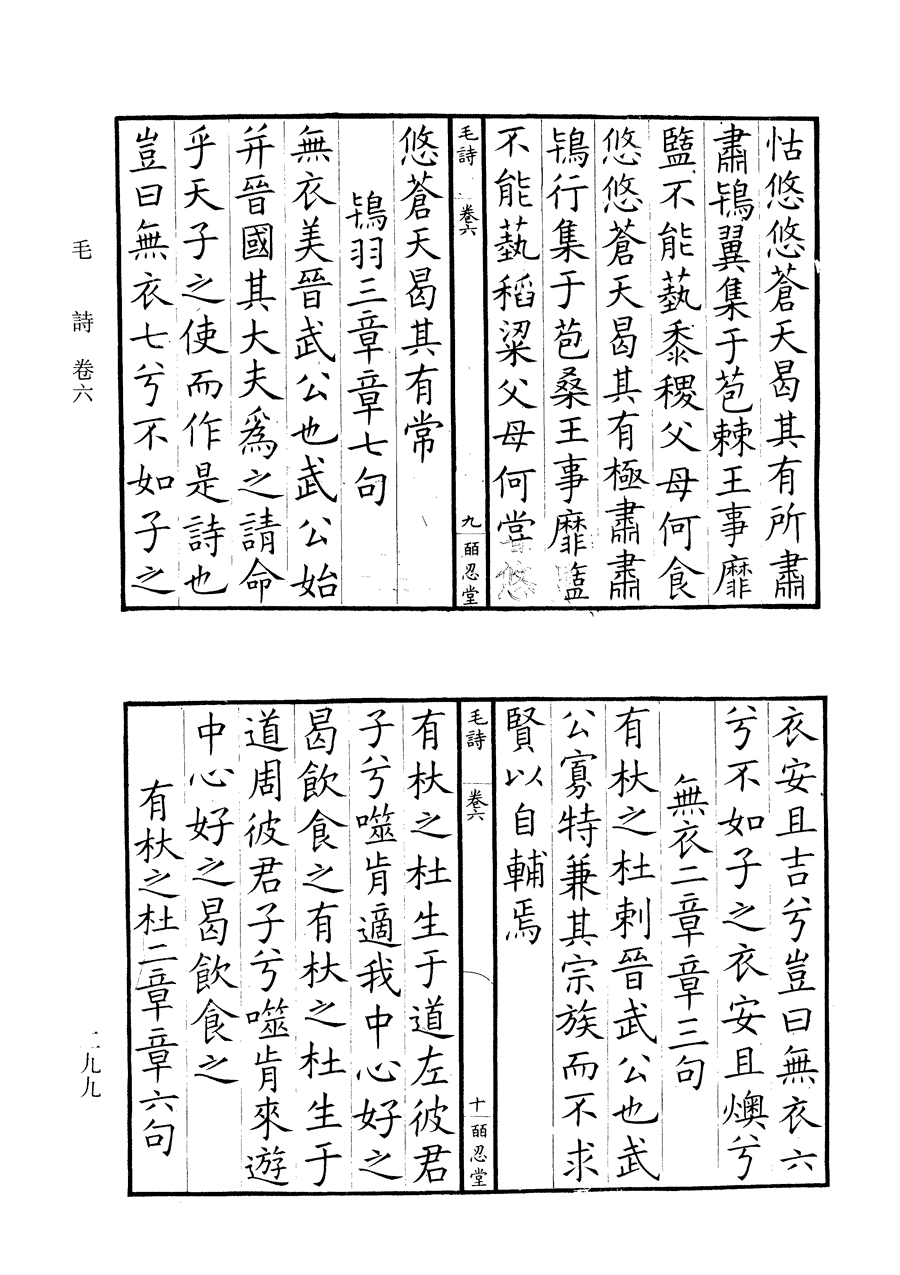 怙悠悠蒼天曷其有所肅
肅鴇翼集于苞棘王事靡
盬不能蓺黍稷父母何食
悠悠蒼天曷其有極肅肅
鴇行集于苞桑王事靡盬
不能蓺稻粱父母何嘗悠
毛詩 卷六 九 皕忍堂
悠蒼天曷其有常
鴇羽三章章七句
無衣美晉武公也武公始
并晉國其大夫爲之請命
乎天子之使而作是詩也
豈曰無衣七兮不如子之
毛詩 卷六
衣安且吉兮豈曰無衣六
兮不如子之衣安且燠兮
無衣二章章三句
有杕之杜刺晉武公也武
公寡特兼其宗族而不求
賢以自輔焉
毛詩 卷六 十 皕忍堂
有杕之杜生于道左彼君
子兮噬肯適我中心好之
曷飲食之有杕之杜生于
道周彼君子兮噬肯來遊
中心好之曷飲食之
有杕之杜二章章六句
二九九